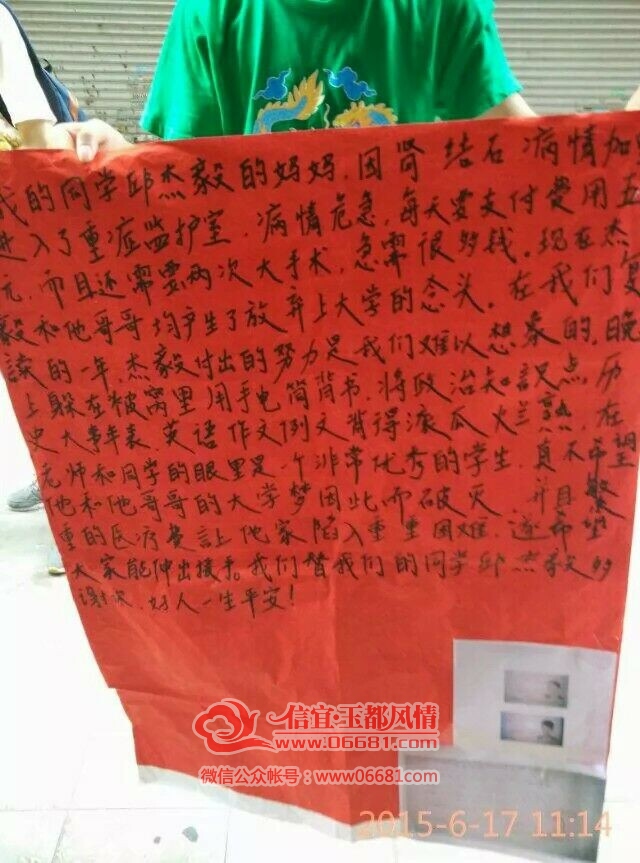 我的同学邱杰毅的妈妈，因肾结石病情加
进入了重症监护室，病情危急，每天要支付费用五
元，而且还需要两次大手术，急需很多钱。现在杰
毅和他哥哥均产生了放弃上大学的念头。在我们复
读的一年，杰毅付出的努力是我们难以想象的，晚
上躲在被窝里用手电筒背书，将政治知识点历
史大事年表，英语作文例文背得滚瓜烂熟，在
老师和同学的眼里是一个非常优秀的学生，真不希望
他和他哥哥的大学梦因此而破灭，并且繁
重的医疗费让他家陷入重重困难，遂希望
大家能伸出援手。我们替我们的同学邱杰毅的
谢，好人一生平安！
信宜·玉都风情
www.06681.com
微信公众帐号：www06681com
2015-6-17 11:14